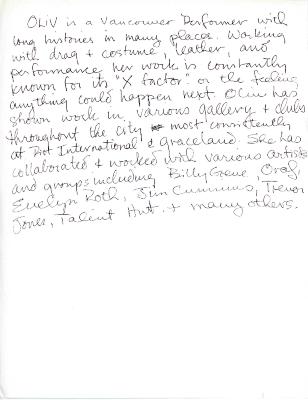 OLIV is a Vancouver Performer with
long histories in many places. Working
with drag + costume, leather, and
performance, her work is constantly
known for its "X factor" or the feeling
anything could happen next. Oliv has
shown work in various gallery + clubs
throughout the city most consistently
at Pitt International & Graceland. She has
collaborated & worked with various artists
and groups including Billy Gene, Oraf,
Evelyn Roth, Jim Cummins, Trevor
Jones, Talent Hut. + many others.